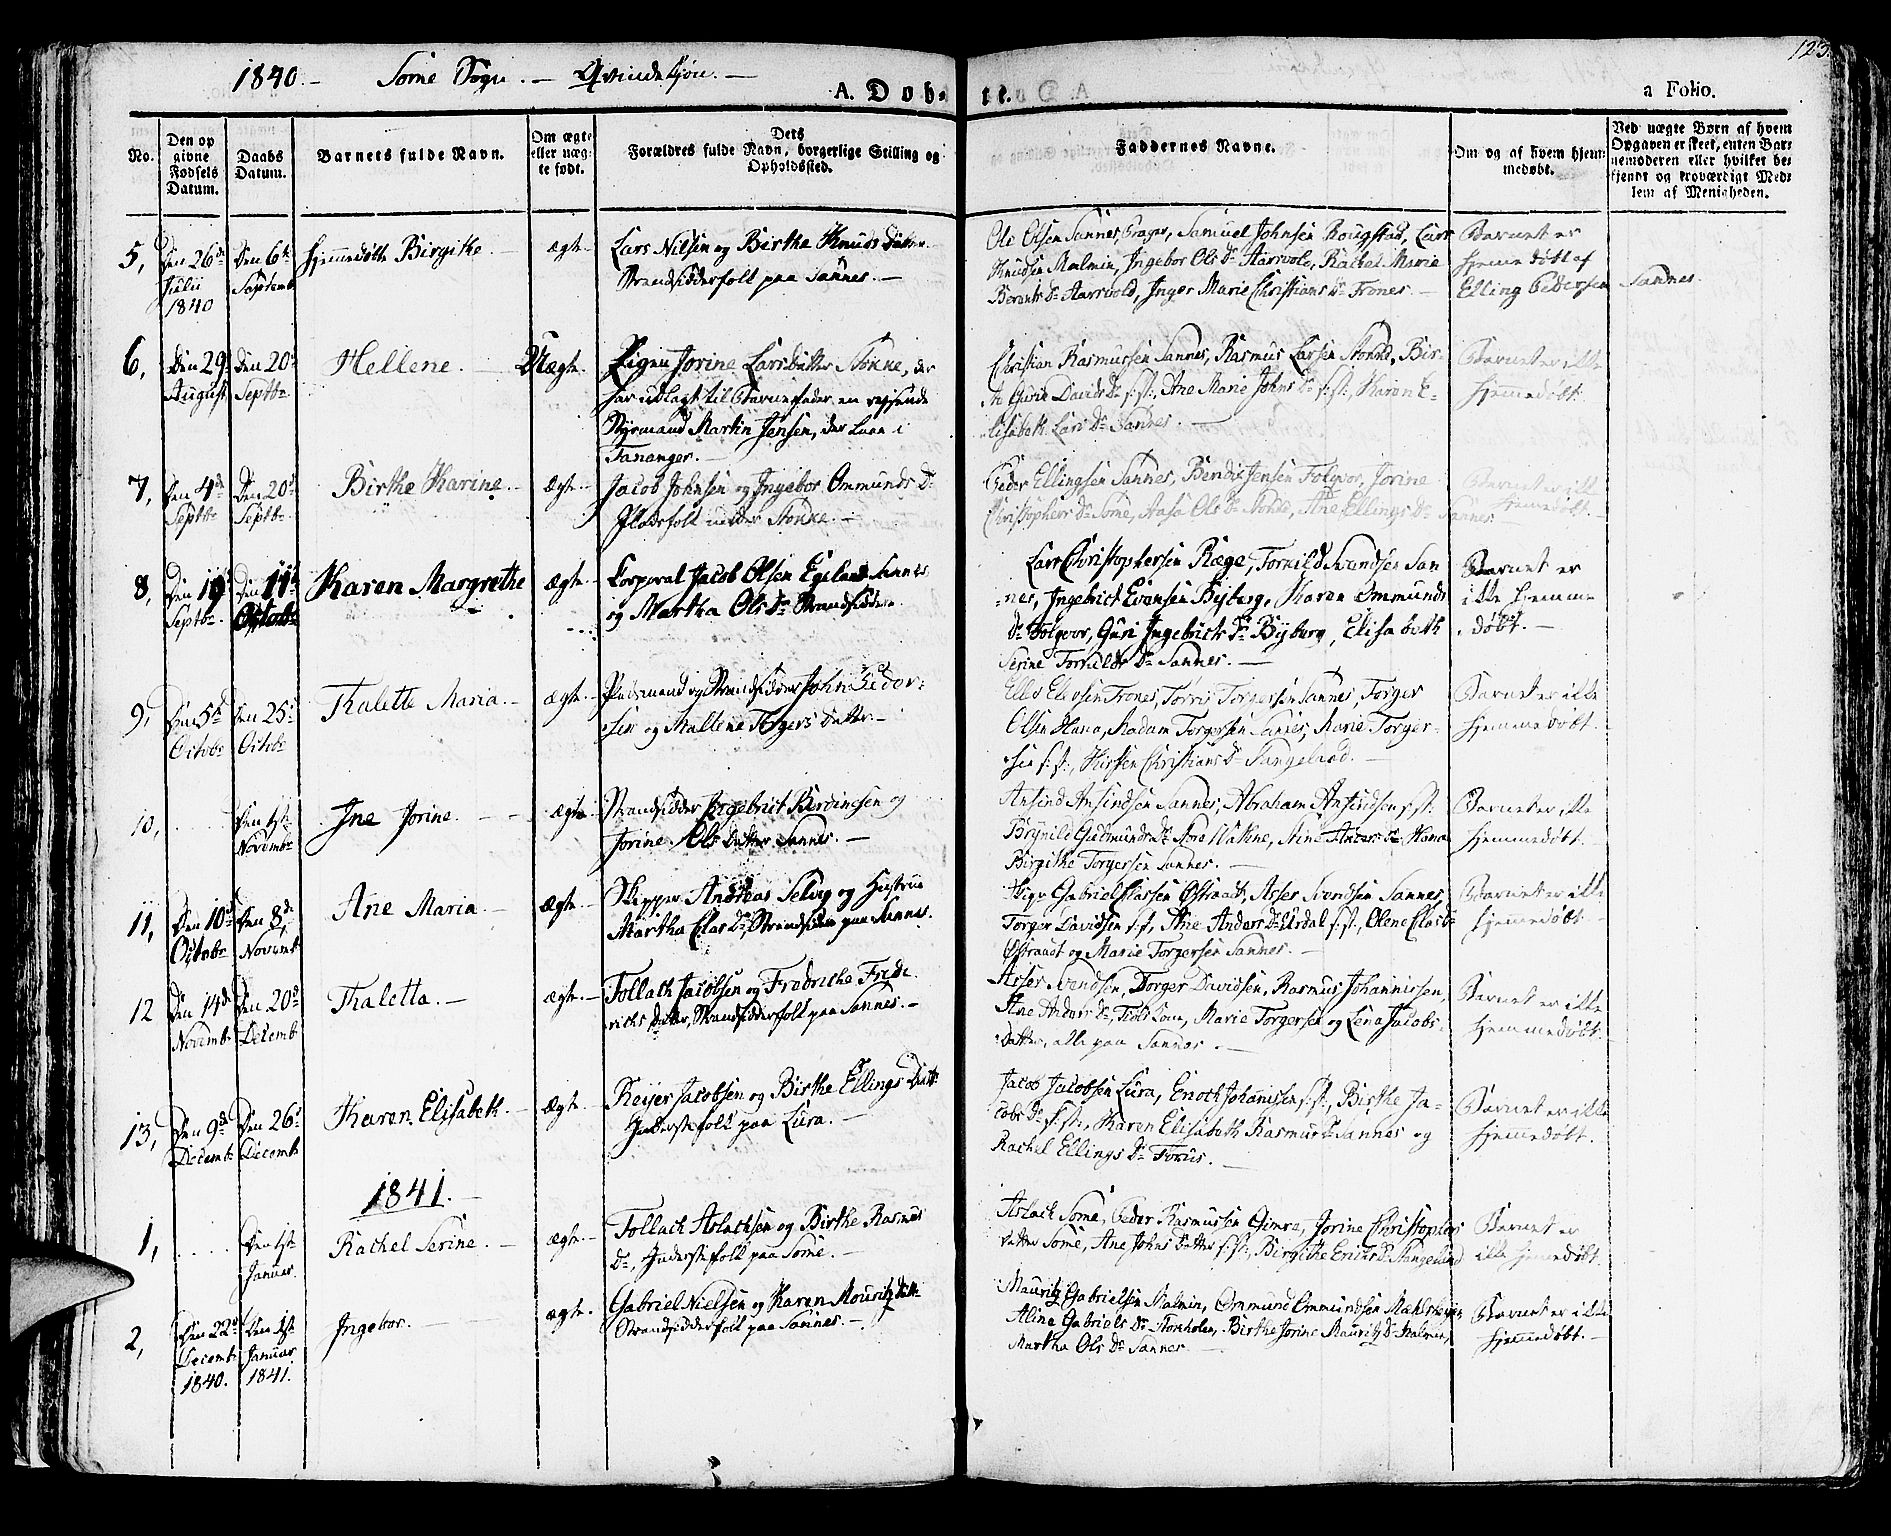 1840. - Some Sogn. - Qvindekjøn. -
123.
A. Døb-
te.
a Folio.
No.
Den op
givne
Fødsels
Datum.
Daabs
Datum.
Barnets fulde Navn.
Om ægte
eller uæg-
te født.
Dets
Forældres fulde Navn, borgerlige Stilling og
Opholdssted.
Faddernes Navne.
Om og af hvem hjem-
medøbt.
Ved uægte Børn af hvem
Opgaven er skeet, enten Bar-
nemoderen eller hvilket be-
kjendt og troværdigt Med-
lem af Menigheden.
5,
Den 26de
Julii
1840
Den 6te
Septemb
Hjemmedøbte Birgithe.
ægte.
Lars Nilsen og Birthe Knuds Datter.
Strandsidderfolk paa Sannes. -
Ole Olsen Sannes, Samuel Johnsen Rougstad, Lars
Knudsen Malmin, Ingebor Ols Dr Aarsvold, Rachel Marie
Berents Dr Aarsvold, Inger Marie Christians Dr Frones. -
Barnet er
hjemmedøbt af
Elling Pedersen Sannes.
6,
Den 29
August
Den 20de
Septbr
Hellene. -
Uægte.
Pigen Jorine Larsdatter Stokke, der
har udlagt til Barnefader en rejsende
Styrmand Martin Jensen, der laae i
Tananger. -
Christian Rasmussen Sannes, Rasmus Larsen Stokke, Bir-
the Gurie Davids Dr s: st:, Ane Marie Johns Dr s: st:, Karen E-
lisabeth Lars Dr Sannes. -
Barnet er ikke
hjemmedøbt.
7,
Den 4de
Septbr
Den 20de
Septbr
Birthe Karine. -
Ægte. -
Jacob Johnsen og Ingebor Ommunds Dr
Pladsfolk under Stokke. -
Peder Ellingsen Sannes, Bendix Jensen Folgvor, Jorine
Christophers Dr Some, Aasa Ols Dr Stokke, Ane Ellings Dr Sannes
Barnet er ikke
hjemmedøbt. -
8,
Den 19
Septbr.
Den 11te
Octobr
Karen Margrethe
ægte.
Korporal Jacob Olsen Egeland Sannes
og Martha Ols Dr Strandsiddere.
Lars Christophersen Ræge, Tornild Svendsen San
nes, Ingebrict Evensen Byberg, Karen Ommunds
Dr Folgvor, Guri Ingebricts Dr Byberg, Elisabeth
Serine Dr Sannes. -
Barnet er
ikke hjemme
døbt. -
9,
Den 5te
Octobr
Den 25de
Octobr
Thalette Maria. -
ægte. -
og Strandsidder John Peder-
sen og Mallene Torgers Datter. -
Frones, Torris Torgersen Sannes, Torger
Olsen Hana, Madam Torgersen Sannes, Marie Torger-
sen s: st:, Kirsten Christians Dr -
Barnet er ikke
hjemmedøbt.
10,
Den 1ste
Novembr
Ine Jorine. -
ægte
Strandsidder Ingebrict og
Jorine Ols Datter Sannes. -
Ansind Ansindsen Sannes, Abraham Ansindsen s: st:
Brynild Gudmunds Dr Store Watne, Stine Anders Dr Hana
Birgithe Torgersen Sannes. -
Barnet er ikke
hjemmedøbt.
11,
Den 10de
Octobr
Den 8de
Novemb
Ane Maria. -
ægte.
Skipper Andreas Selvig og Hustrue
Martha Elas Dr, Strandsidder paa Sannes.
Gabriel Elassen Østraadt, Asser Svendsen Sannes,
Torger Davidsen s: st:, Ane Anders Dr Aardal s: st:, Olene Elas Dr
Østraadt og Marie Torgersen Sannes. -
Barnet er ikke
hjemmedøbt -
12
Den 14de
Novemb
Den 20de
Decemb
Thaletta. -
ægte. -
Tollach Jacobsen og Fredriche Frede
richs Datter, Strandsidderfolk paa Sannes. -
Asser Svendsen, Torger Davidsen, Rasmus Johannissen,
Ane Anders Dr, Marie Torgersen og Lena Jacobs-
Datter, alle paa Sannes. -
Barnet er ikke
hjemmedøbt.
13,
Den 9de
Decemb
Den 26de
Decemb
Karen Elisabeth. -
Ægte -
Reijer Jacobsen og Birthe Ellings Datter
Inderstefolk paa Lura. -
Jacob Jacobsen Lura, Enoch Johanissen s: st:, Birthe Ja-
cobs Dr s: st:, Karen Elisabeth Rasmus Dr Sannes og
Rachel Ellings Dr Forus. -
Barnet er ikke
hjemmedøbt.
1841. -
1,
Den 1ste
Januar
Rachel Serine. -
ægte. -
Tollach Aslachsen og Birthe Rasmus
Dr, Inderstefolk paa Some. -
Aslach Some, Peder Rasmussen Gimre, Jorine Christophers
Datter Some, Ane Johns Datter s: st:, Birgithe Erichs Dr
Barnet er
ikke hjemmedøbt.
2,
Den 22de
Decemb
1840.
Den 1ste
Januar
1841.
Ingebor. -
ægte.
Gabriel Nielsen og Karen Mouritz Datter
Strandsidderfolk paa Sannes. -
Mauritz Gabrielsen Malmin, Ommund Ommundsen
Aline Gabriels Dr Stokholm, Birthe Jorine Mauritz Dr Malmin,
Martha Ols Dr Sannes -
Barnet er ikke
hjemmedøbt. -